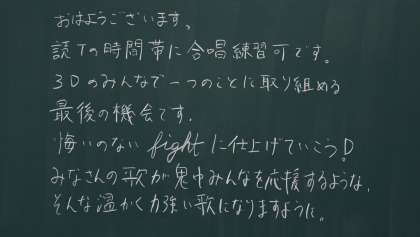 おはようございます。
読Tの時間帯に合唱練習可です。
3Dのみんなで一つのことに取り組める
最後の機会です.
悔いのない fight に仕上げていこう!
みなさんの歌が鬼中みんなを応援するような,
そんな温かく力強い歌になりますように。